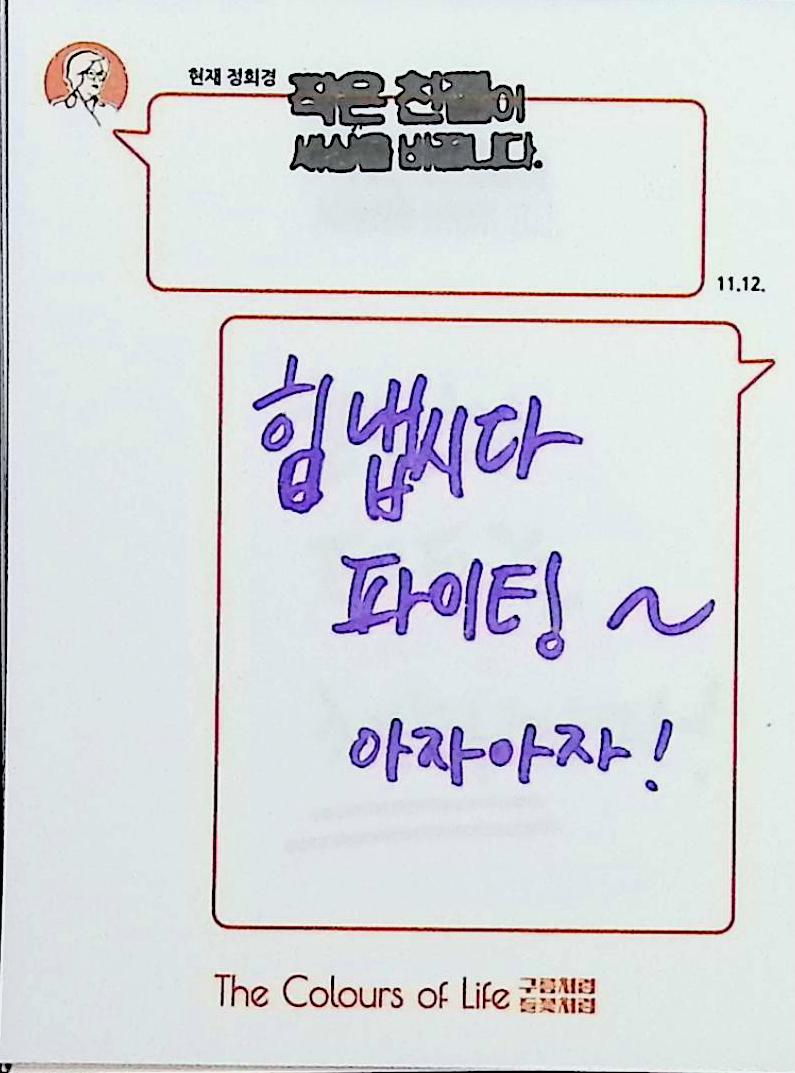 현재 정희경
작은 친절이
세상을 바꿉니다.
11.12.
힘냅시다
파이팅 ~
아자아자!
The Colours of Life 구름처럼
들꽃처럼